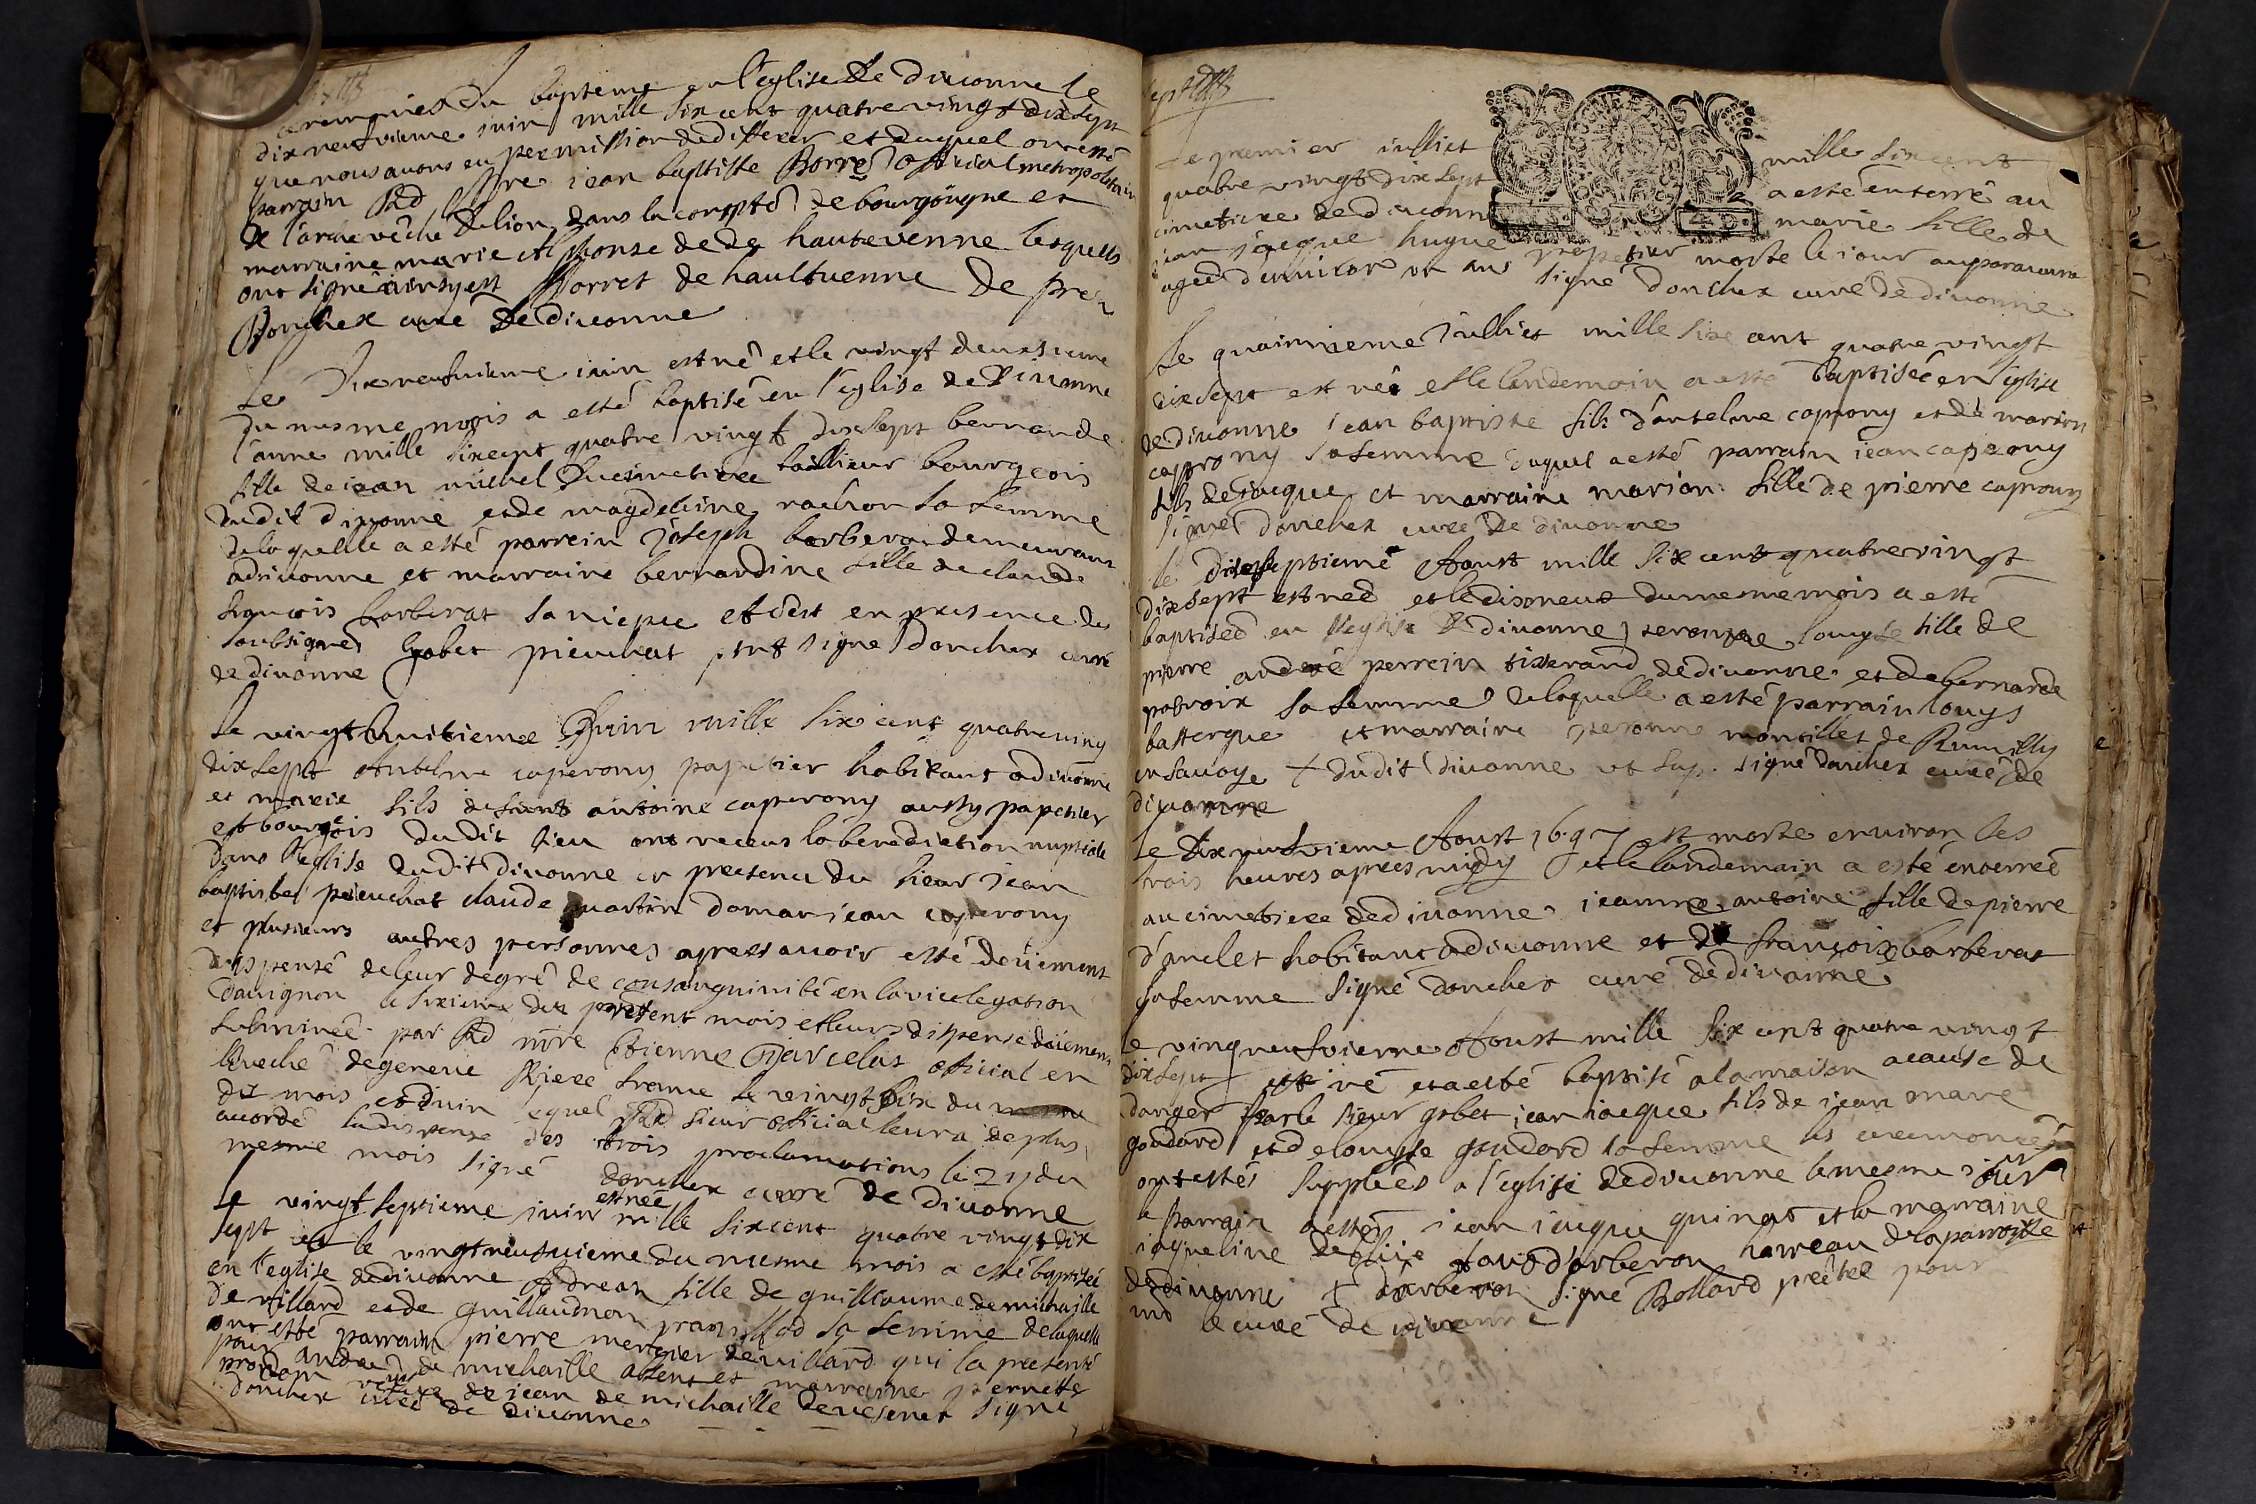 ceremonies du bapteme en l'eglise de divonne le
dix neufvieme juin mille six cent quatre vingt dix sept
que nous avons eu permission de differer et duquel ont esté
parrain Rd jean baptiste Borré official metropolitain
de l'archevêché de lion dans la compté de bourgougne et
marraine marie Alphonse de hautevenne lesquels
ont signé ainsy est Borret de haultvenne de prez
Donchex curé de divonne
Le Dixneufvieme juin est né et le vingt deuxsieme
du mesme mois a esté baptisé en l'eglise de Divonne
l'anne mille sixcent quatre vingt dix sept bernarde
fille de jean michel Ducimetiere taillieur bourgeois
dudit divonne et de magdeleine rachon sa femme
de laquelle a esté parrein joseph barberat demeurant
a divonne et marraine bernardine fille de claude
françois barberat sa niepce et c'est en presence des
soubsignes gobet pieuchat signé donchex curé
de divonne
Le vingthuitieme Juin mille six cent quatre ving
dix sept Antelme caperony papetier habitant a divonne
et marie fils defunt antoine caperony aussy papetier
et bourgeois dudit lieu ont receus la benediction nuptiale
dans l'eglise dudit divonne en presence du sieur jean
baptiste pieuchat claude martin jean caperony
et plusieurs autres personnes apres avoir esté deüement
dispensé de leur degré de consanguinité en la vicelegation
davignon le sixieme du present mois et leurs dispense düement
fulminée par Rd mre Etienne official en
l'eveché de geneve Riere france le vingt six du
dit mois et lequel Rd sieur official leur a de plus
accordé la dispense des trois proclamations le 27 du
mesme mois signé donchex curé de Divonne
Le vingt septieme juin est née mille sixcent quatre vingt dix
sept et le vingtneufuieme du mesme mois a esté baptisée
en l'eglise de divonne Andrean fille de guilliaume de michaille
de villard et de guillaudman sa femme de laquelle
ont esté parrain pierre mercier de villard qui la presenté
pour andre de michaille absent et marraine pernette
prodom vefve de jean de michaille de vesenet signé
donchex curé de divonne
Le premier julliet mille sixcent
quatre vingt dix sept a esté enterré au
cimetiere de divonne marie fille de
jean jacque hugue papetier morte le jour auparavant
agee d'environ un an signé donchex curé de divonne
Le quainzieme julliet mille six cent quatre vingt
dixsept est né et le lendemain a esté baptisé en l'eglise
de divonne jean baptiste fils d'antelme caprony et de marion
caprony sa femme duquel a esté parrain jean caprony
fils de jacque et marraine marion fille de pierre caprony
signé donchex curé de divonne
le dixseptieme Aoust mille six cent quatre vingt
dixsept est née et le dixneuf du mesme mois a esté
baptisée en l'eglise de divonne louyse fille de
pierre andré perrein tisserand de divonne et de bernarde
patroix sa femme de laquelle a esté parrain louys
bastergue et marraine monsillet de Rumilly
en Savoye + dudit divonne ut sup. signé donchex curé de
divonne
Le dix neufvieme Aoust 1697 est morte environ les
trois heures apres midy et le landemain a esté enterreé
au cimetiere de divonne jeanne antoine fille de pierre
d'anclet habitant a divonne et de françoise barberat
sa femme signé donchex curé de divonne
Le vingneufvieme Aoust mille six cent quatre vingt
dixsept est né et a esté baptisé a la maison a cause de
danger par le sieur gobet jean jacque fils de jean marc
goudard et de louyse goudard sa femme les ceremoniés
ont estés suppleés a l'eglise de divonne le mesme jour
le parrain a estés jean jacque quinat et la marraine
jaqueline d'arberon hameau de la paroisse
de divonne + d'arberon signé Bollard prêtre pour
mr le curé de divonne